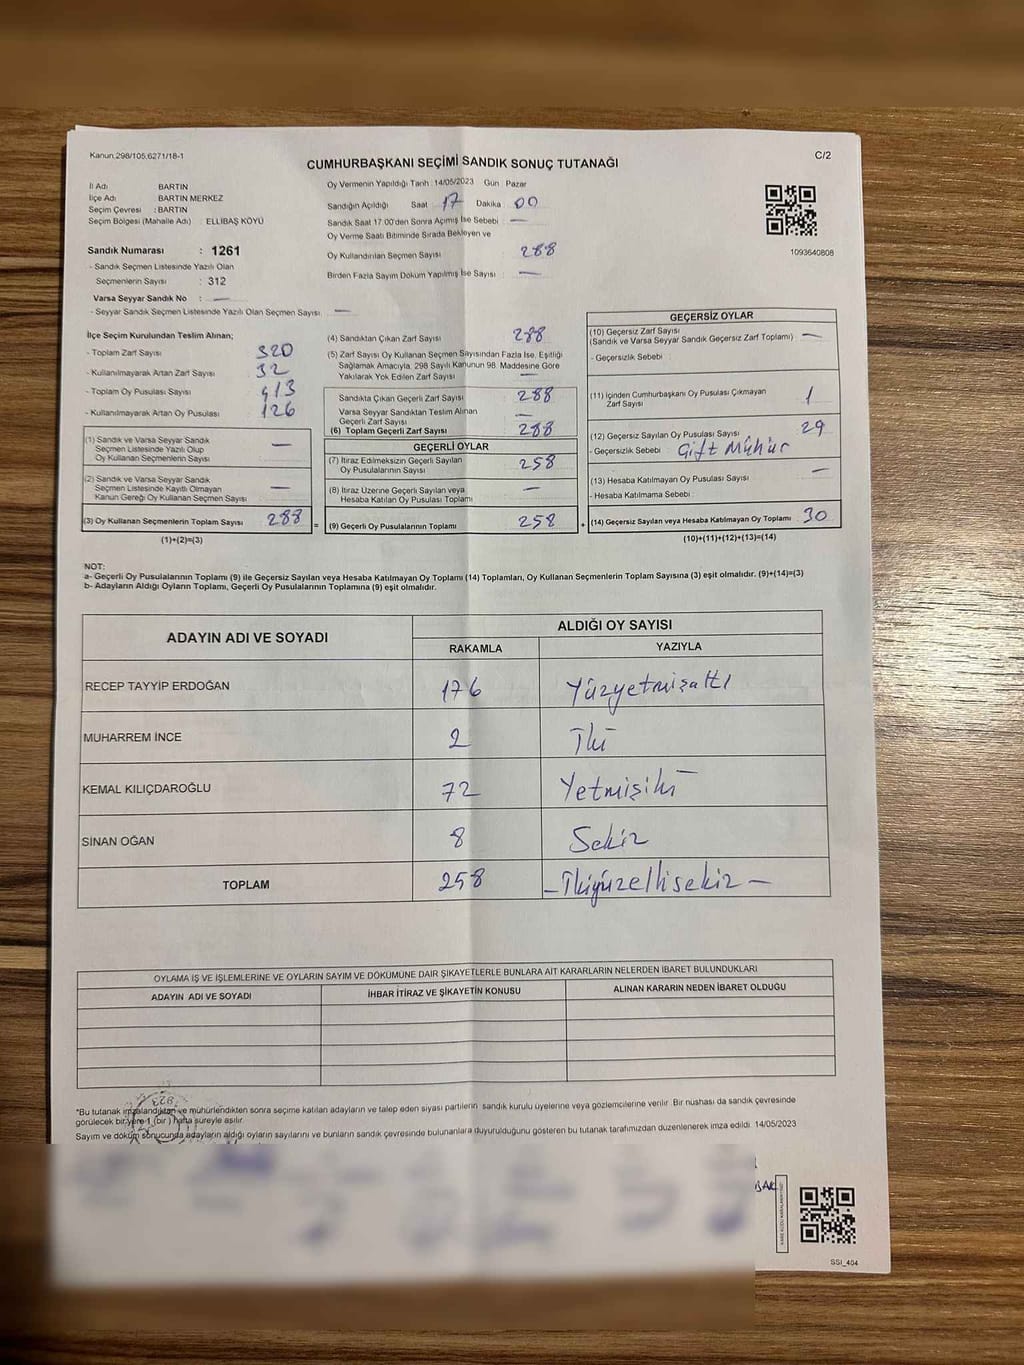 Kanun:298/105,6271/18-1
CUMHURBAŞKANI SEÇİMİ SANDIK SONUÇ TUTANAĞI
C/2
İl Adı BARTIN
İlçe Adı BARTIN MERKEZ
Seçim Çevresi : BARTIN
Seçim Bölgesi (Mahalle Adı) : ELLİBAŞ KÖYÜ
Oy Vermenin Yapıldığı Tarih :14/05/2023 Gün Pazar
Sandığın Açıldığı Saat 17 Dakika 00
Sandık Saat 17.00'den Sonra Açımış İse Sebebi : —
Oy Verme Saati Bitiminde Sırada Bekleyen ve
Oy Kullandırılan Seçmen Sayısı 288
Birden Fazla Sayım Döküm Yapılmış İse Sayısı : —
1093640808
Sandık Numarası : 1261
- Sandık Seçmen Listesinde Yazılı Olan
Seçmenlerin Sayısı : 312
Varsa Seyyar Sandık No : —
- Seyyar Sandık Seçmen Listesinde Yazılı Olan Seçmen Sayısı: —
İlçe Seçim Kurulundan Teslim Alınan;
- Toplam Zarf Sayısı 320
- Kullanılmayarak Artan Zarf Sayısı 32
- Toplam Oy Pusulası Sayısı 413
- Kullanılmayarak Artan Oy Pusulası 126
(1) Sandık ve Varsa Seyyar Sandık
Seçmen Listesinde Yazılı Olup
Oy Kullanan Seçmenlerin Sayısı —
(2) Sandık ve Varsa Seyyar Sandık
Seçmen Listesinde Kayıtlı Olmayan
Kanun Gereği Oy Kullanan Seçmen Sayısı —
(3) Oy Kullanan Seçmenlerin Toplam Sayısı 288 =
(1)+(2)=(3)
(4) Sandıktan Çıkan Zarf Sayısı 288
(5) Zarf Sayısı Oy Kullanan Seçmen Sayısından Fazla İse, Eşitliği
Sağlamak Amacıyla, 298 Sayılı Kanunun 98. Maddesine Göre
Yakılarak Yok Edilen Zarf Sayısı —
Sandıkta Çıkan Geçerli Zarf Sayısı 288
Varsa Seyyar Sandıktan Teslim Alınan
Geçerli Zarf Sayısı —
(6) Toplam Geçerli Zarf Sayısı 288
GEÇERLİ OYLAR
(7) İtiraz Edilmeksizin Geçerli Sayılan
Oy Pusulalarının Sayısı 258
(8) İtiraz Üzerine Geçerli Sayılan veya
Hesaba Katılan Oy Pusulası Toplamı —
(9) Geçerli Oy Pusulalarının Toplamı 258 +
GEÇERSİZ OYLAR
(10) Geçersiz Zarf Sayısı
(Sandık ve Varsa Seyyar Sandık Geçersiz Zarf Toplamı) —
- Geçersizlik Sebebi :
(11) İçinden Cumhurbaşkanı Oy Pusulası Çıkmayan
Zarf Sayısı 1
(12) Geçersiz Sayılan Oy Pusulası Sayısı 29
- Geçersizlik Sebebi : Çift Mühür
(13) Hesaba Katılmayan Oy Pusulası Sayısı —
- Hesaba Katılmama Sebebi :
(14) Geçersiz Sayılan veya Hesaba Katılmayan Oy Toplamı 30
(10)+(11)+(12)+(13)=(14)
NOT:
a- Geçerli Oy Pusulalarının Toplamı (9) ile Geçersiz Sayılan veya Hesaba Katılmayan Oy Toplamı (14) Toplamları, Oy Kullanan Seçmenlerin Toplam Sayısına (3) eşit olmalıdır. (9)+(14)=(3)
b- Adayların Aldığı Oyların Toplamı, Geçerli Oy Pusulalarının Toplamına (9) eşit olmalıdır.
ADAYIN ADI VE SOYADI ALDIĞI OY SAYISI
RAKAMLA YAZIYLA
RECEP TAYYİP ERDOĞAN 176 Yüzyetmişaltı
MUHARREM İNCE 2 İki
KEMAL KILIÇDAROĞLU 72 Yetmişiki
SİNAN OĞAN 8 Sekiz
TOPLAM 258 —İkiyüzellisekiz—
OYLAMA İŞ VE İŞLEMLERİNE VE OYLARIN SAYIM VE DÖKÜMÜNE DAİR ŞİKAYETLERLE BUNLARA AİT KARARLARIN NELERDEN İBARET BULUNDUKLARI
ADAYIN ADI VE SOYADI İHBAR İTİRAZ VE ŞİKAYETİN KONUSU ALINAN KARARIN NEDEN İBARET OLDUĞU
*Bu tutanak imzalandıktan ve mühürlendikten sonra seçime katılan adayların ve talep eden siyasi partilerin sandık kurulu üyelerine veya gözlemcilerine verilir. Bir nüshası da sandık çevresinde
görülecek bir yere 1 (bir) hafta süreyle asılır.
Sayım ve döküm sonucunda adayların aldığı oyların sayılarını ve bunların sandık çevresinde bulunanlara duyurulduğunu gösteren bu tutanak tarafımızdan düzenlenerek imza edildi. 14/05/2023
SSI_404